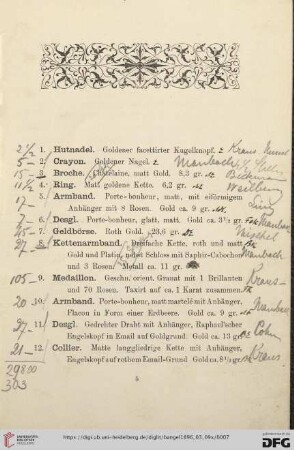 21/2 1. Hutnadel. Goldener facettirter Kugelknopf. 2 Kraus
5- 2. Crayon. Goldener Nagel. 2 Manbach
15- 3. Broche. Châtelaine, matt Gold. 8.3 gr.
11/2 4. Ring. Matt goldene Kette. 6,2 gr. Wartberg
17- 5. Armband. Porte-bonheur, matt, mit eiförmigem
Anhänger mit 8 Rosen. Gold ca. 9 gr.
7- 6. Desgl. Porte-bonheur, glatt, matt. Gold ca. 3½ gr
45- 7. Geldbörse. Roth Gold. 23,6 gr.
97- 8. Kettenarmband. Dreifache Kette, roth und matt
Gold und Platin, nebst Schloss mit Saphir-Cabochon
und 3 Rosen. Metall ca. 11 gr. Manbach
105- 9. Medaillon. Geschn. orient. Granat mit 1 Brillanten Kraus
und 70 Rosen. Taxirt auf ca. 1 Karat zusammen
20 10. Armband. Porte-bonheur, matt martelé mit Anhänger, Manbach
Flacon in Form einer Erdbeere. Gold ca. 9 gr.
27- 11. Desgl. Gedrehter Draht mit Anhänger, Raphael'scher
Engelskopf in Email auf Goldgrund. Gold ca. 13 gr. Cohn
21- 12. Collier. Matte langgliedrige Kette mit Anhänger,
Engelskopf auf rothem Email-Grund Gold ca. 8½ gr. Kraus
303
http://digi.ub.uni-heidelberg.de/diglit/lange1896_03_09a/0007
UNIVERSITÄTS-
BIBLIOTHEK
HEIDELBERG
Gefördert durch
DFG